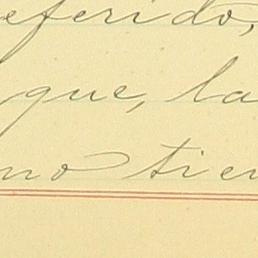 eferido,
que, la
no tien